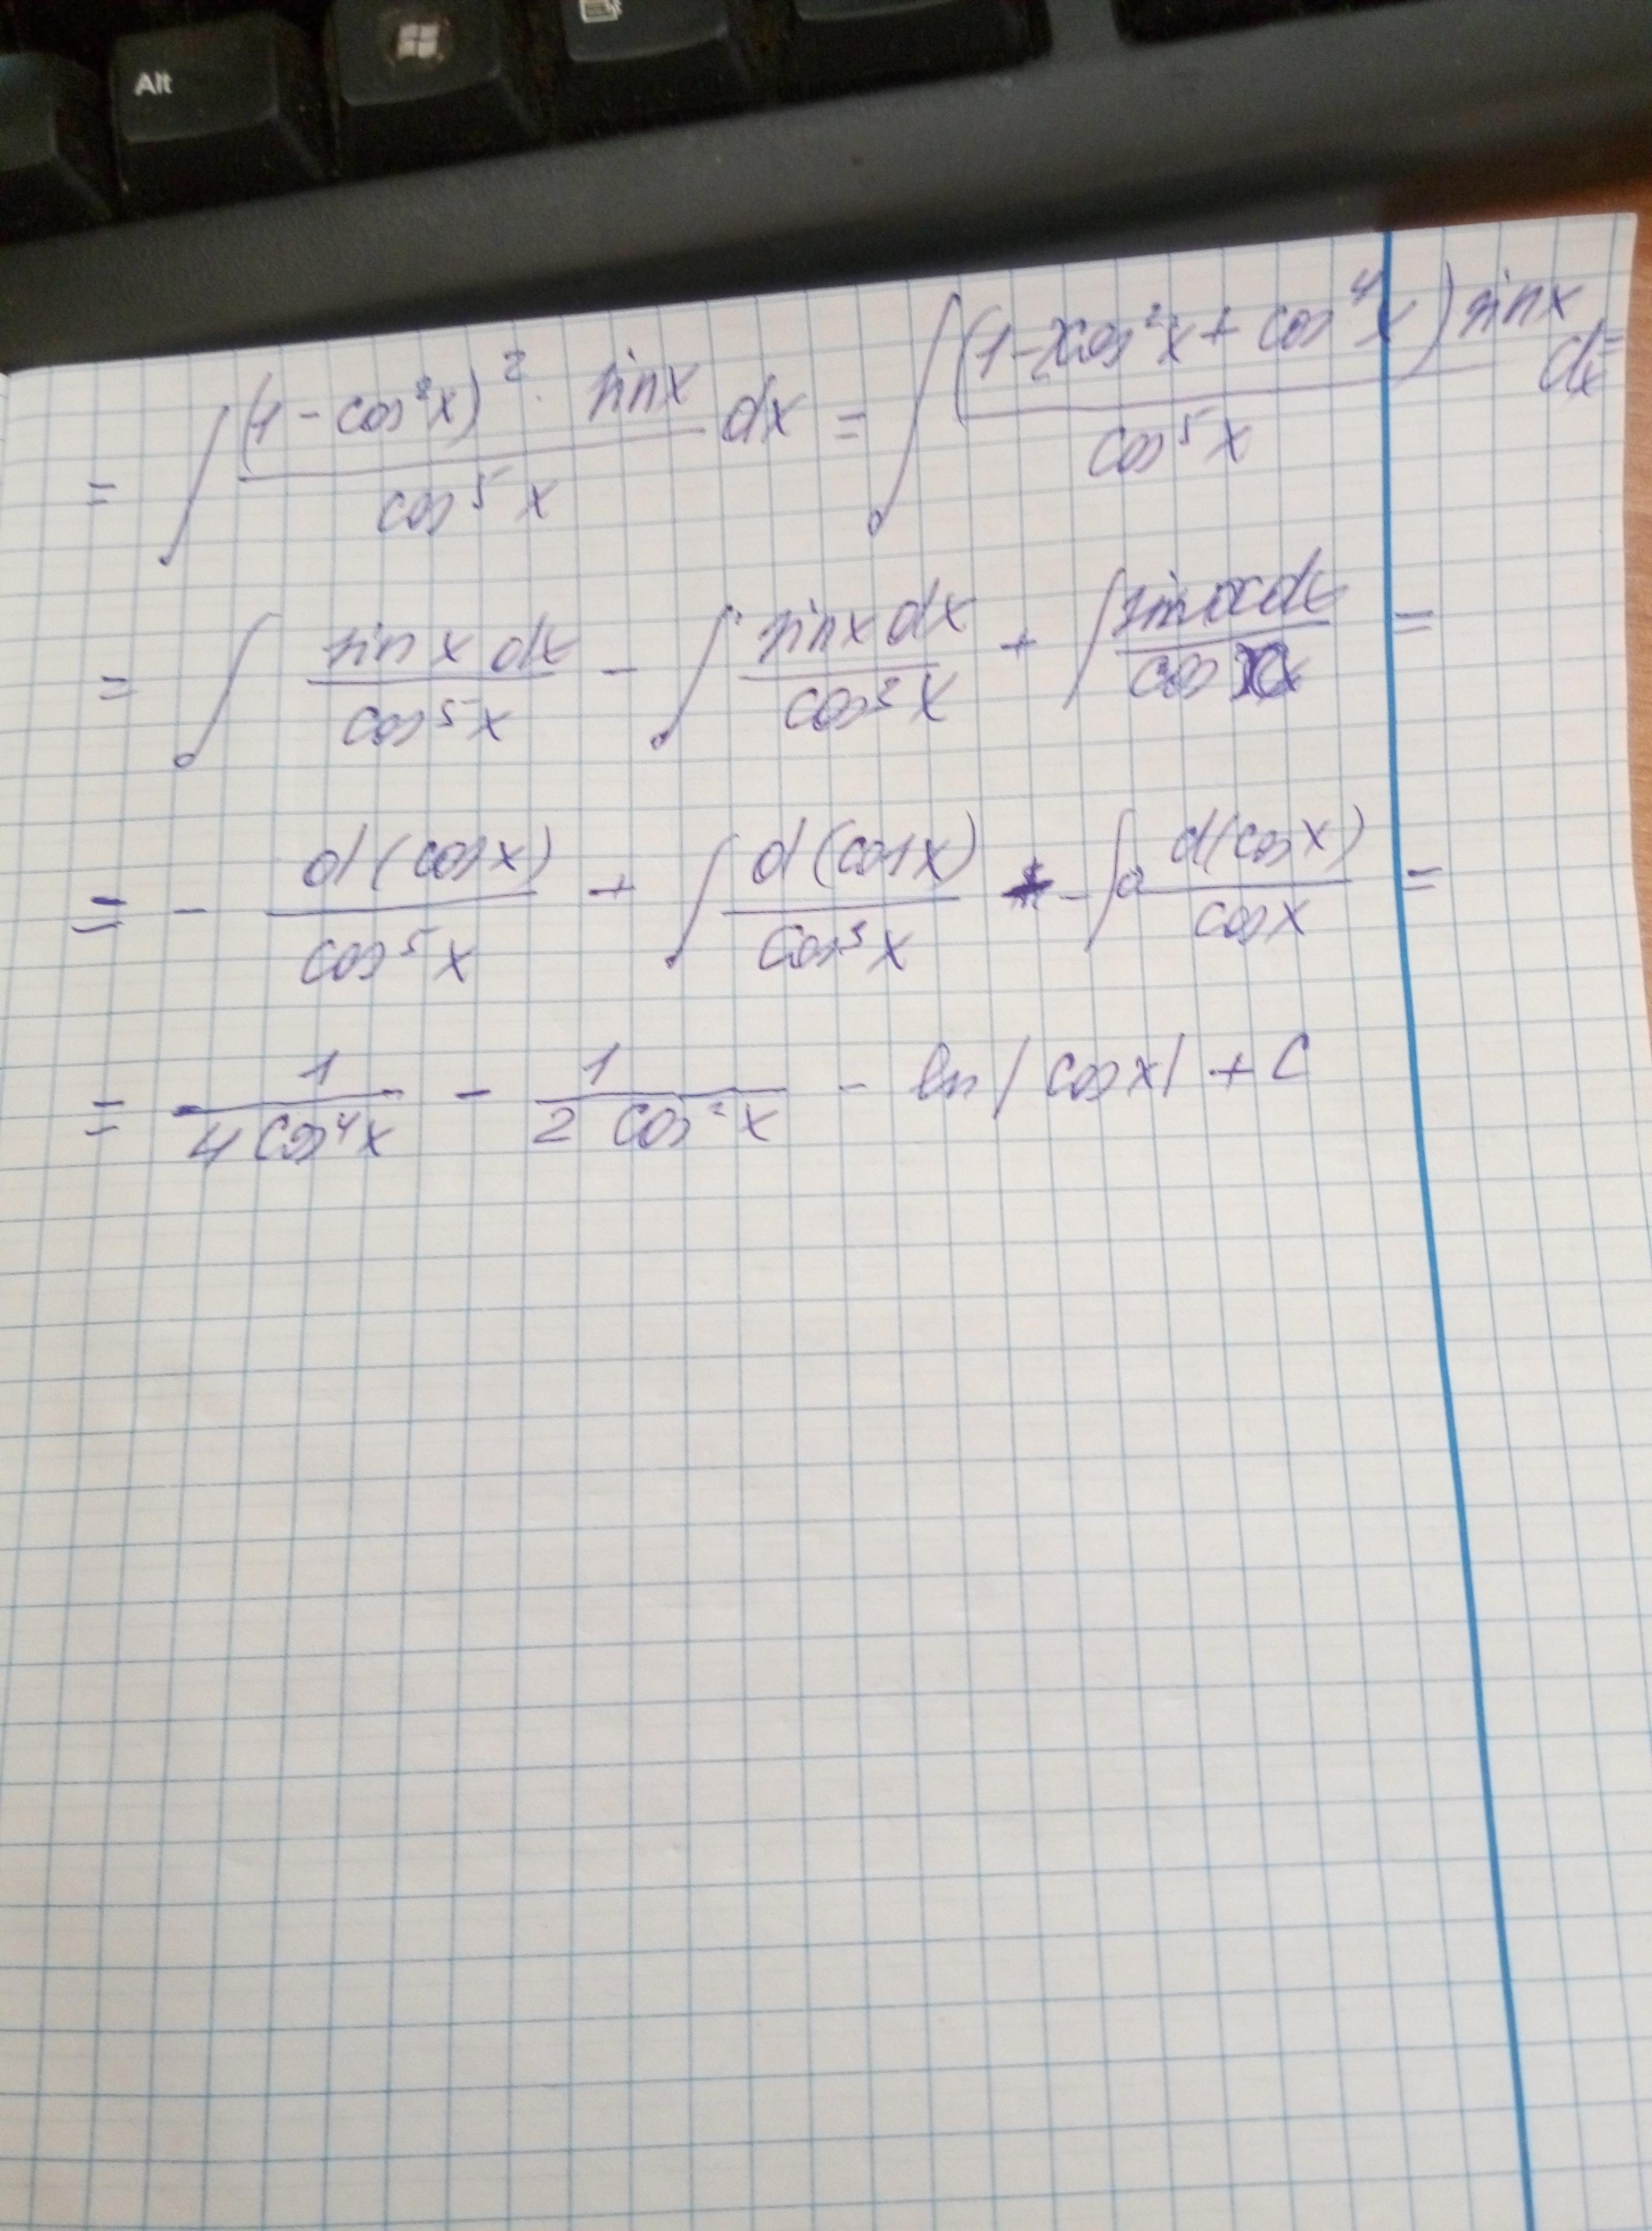 Alt
= ∫ (1 - cos²x)² · sinx / cos⁵x dx = ∫ (1 - 2cos²x + cos⁴x) sinx / cos⁵x dx =
= ∫ sin x dx / cos⁵x - ∫ sinx dx / cos³x + ∫ sinx dx / cos x =
= - d(cosx) / cos⁵x + ∫ d(cosx) / cos³x - ∫ d(cosx) / cosx =
= 1 / 4cos⁴x - 1 / 2 cos²x - ln|cosx| + C